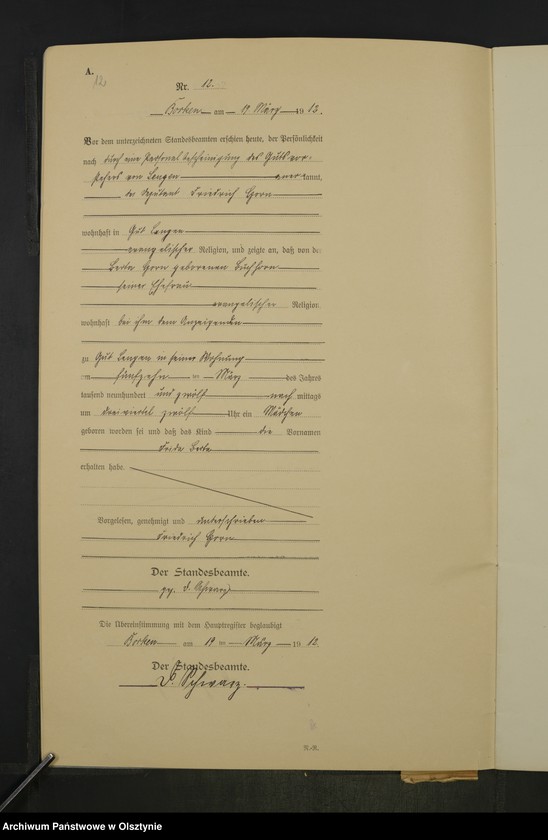 A.
12
Nr. 12.
Borken am 19 März 1912.
Vor dem unterzeichneten Standesbeamten erschien heute, der Persönlichkeit
nach durch eine Personalbescheinigung des Gutsvor-
stehers von Lengen anerkannt,
der Deputant Friedrich Gorn
wohnhaft in Gut Lengen
evangelischer Religion, und zeigte an, daß von der
Berta Gorn geborenen Buchhorn
seiner Ehefrau
evangelischer Religion
wohnhaft bei ihm dem Anzeigenden
zu Gut Lengen in seiner Wohnung
am fünfzehn ten März des Jahres
tausend neunhundert und zwölf nach mittags
um dreiviertel zwölf Uhr ein Mädchen
geboren worden sei und daß das Kind die Vornamen
Frida Berta
erhalten habe.
Vorgelesen, genehmigt und unterschrieben
Friedrich Gorn
Der Standesbeamte.
gez. D. Schwarz
Die Übereinstimmung mit dem Hauptregister beglaubigt
Borken am 19 ten März 1912.
Der Standesbeamte.
D. Schwarz.
R.-R.
Archiwum Państwowe w Olsztynie